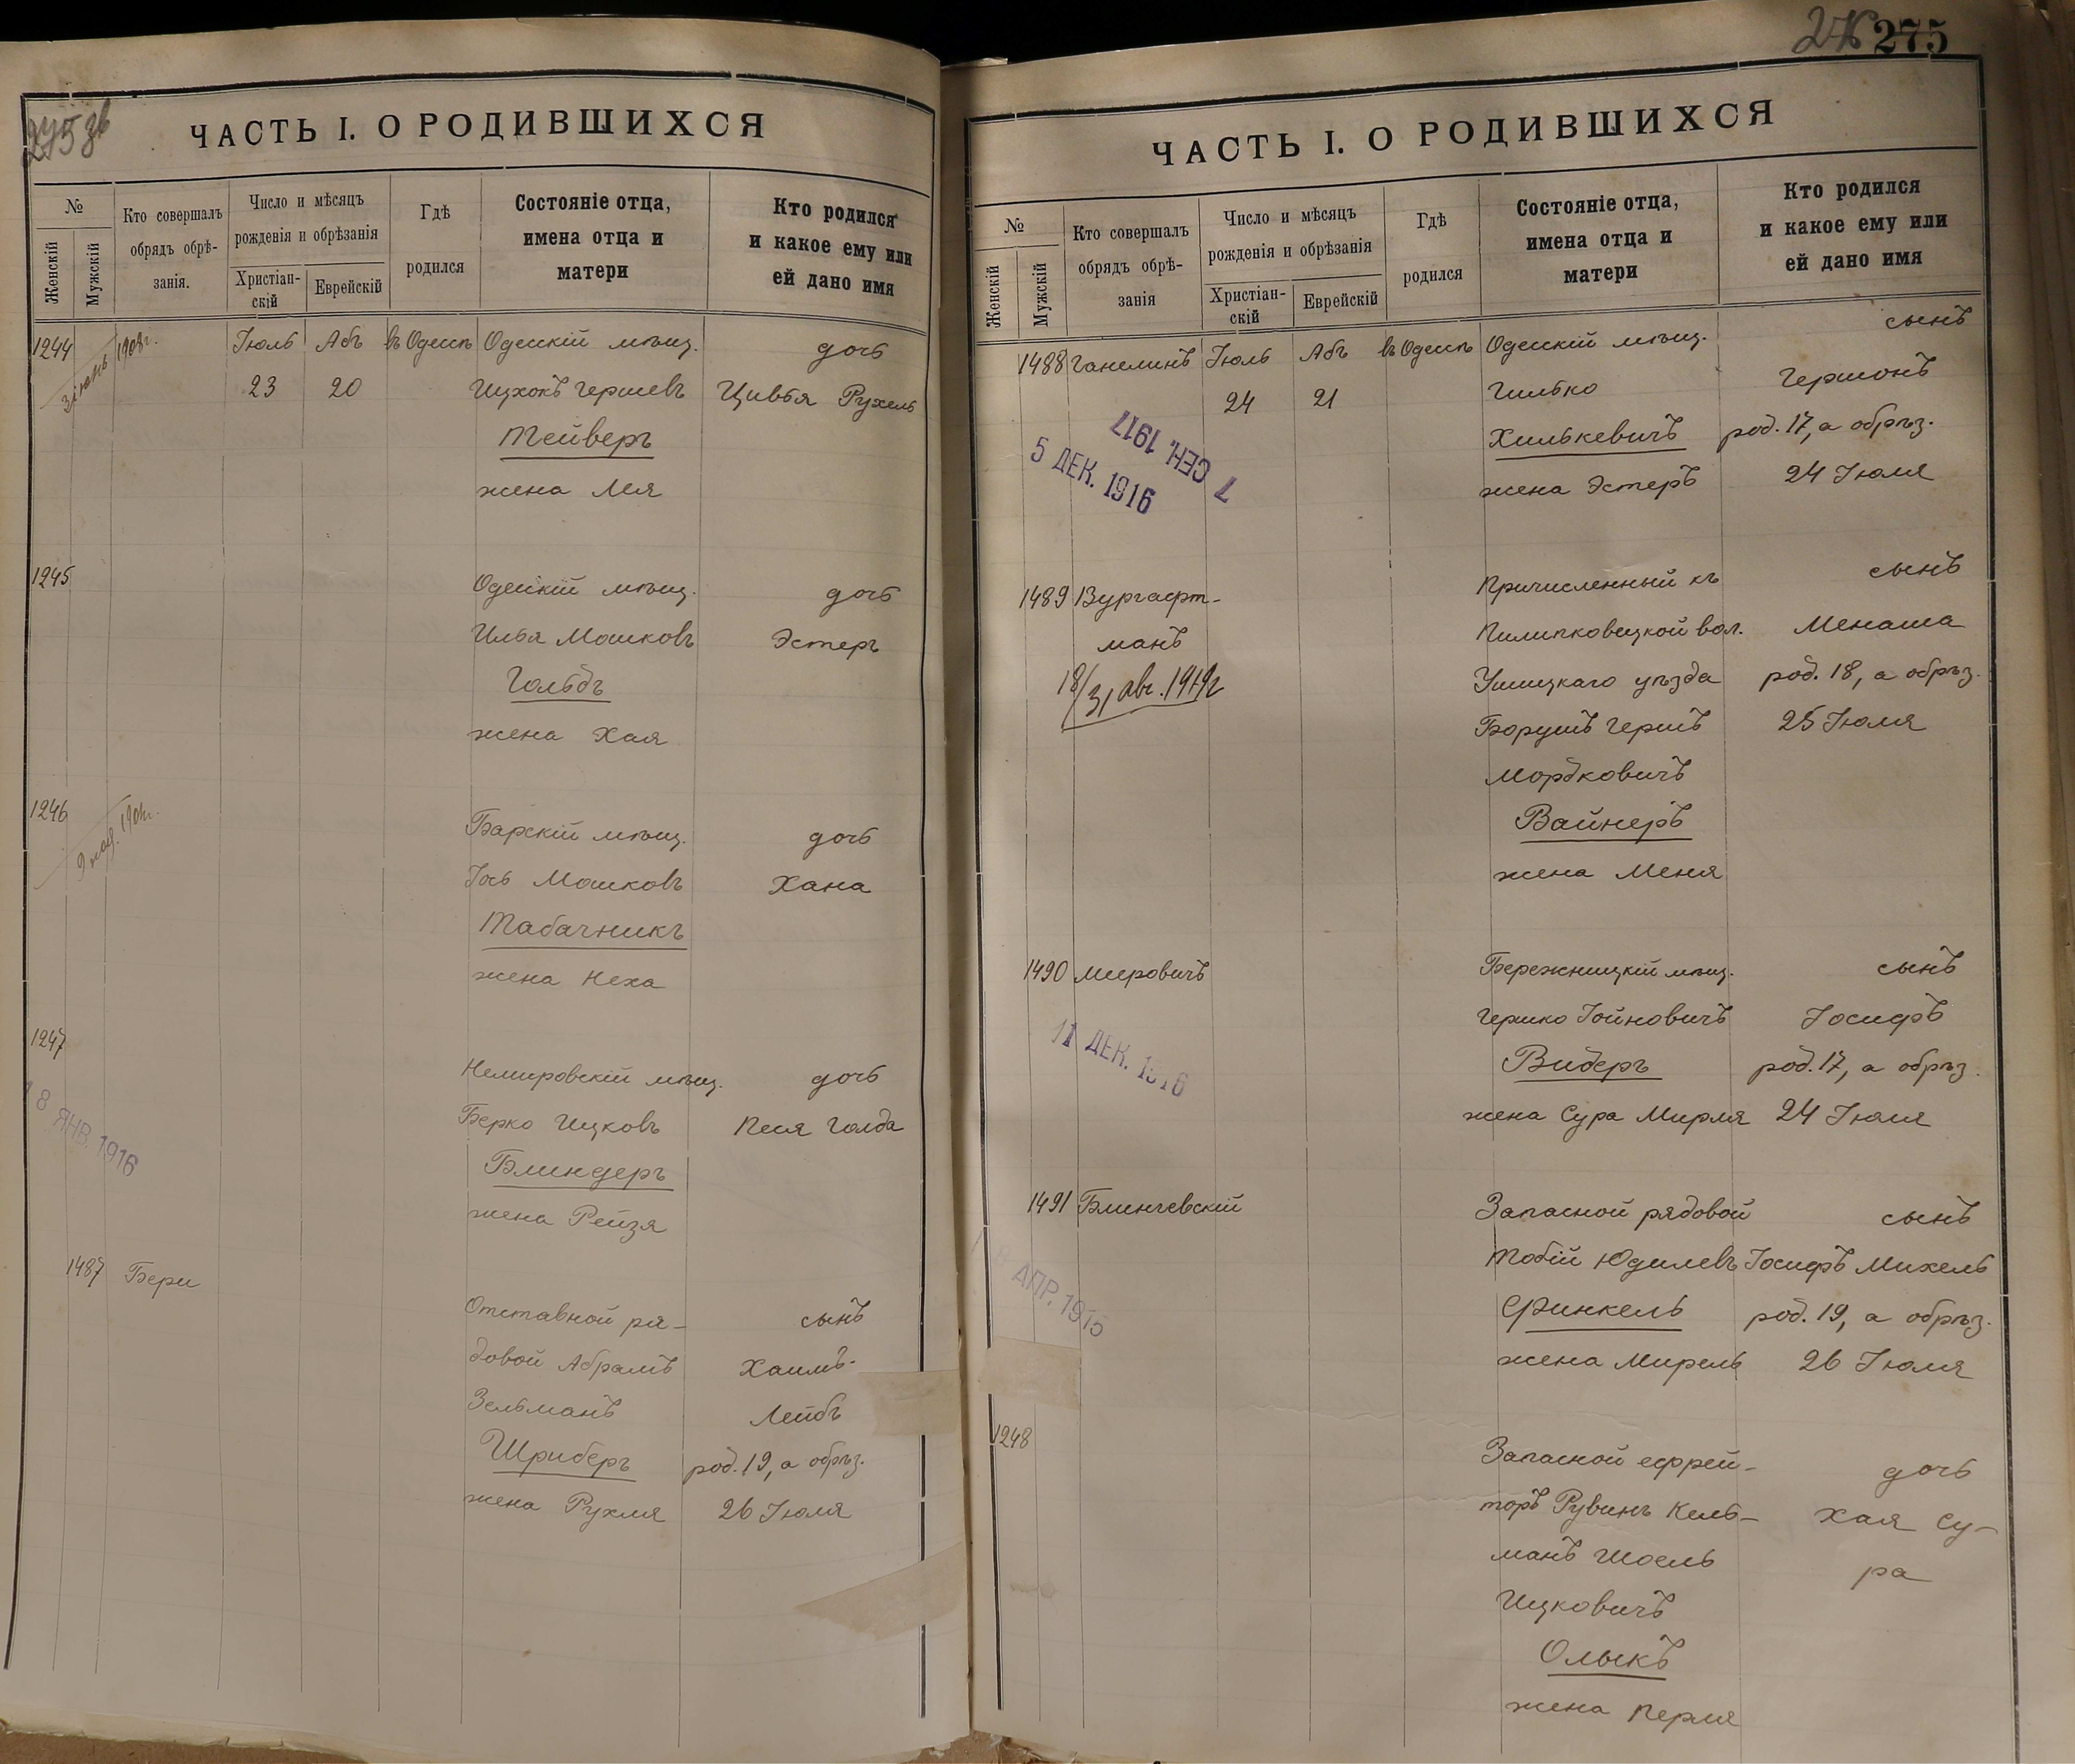 275 зв
ЧАСТЬ I. О РОДИВШИХСЯ
№
Женскій
Мужскій
Кто совершалъ
обрядъ обрѣ-
занія.
Число и мѣсяцъ
рожденія и обрѣзанія
Христіан-
скій
Еврейскій
Гдѣ
родился
Состояніе отца,
имена отца и
матери
Кто родился
и какое ему или
ей дано имя
1244 Іюль Абъ въ Одессѣ Одесскій мѣщ. дочь
1908г.
23 20 Ицхокъ Гершевъ Цивья Рухель
Тейверъ
жена Лея
1245 Одесскій мѣщ. дочь
Илья Мошковъ Эстеръ
Гольдъ
жена Хая
1246 Барскій мѣщ. дочь
Іось Мошковъ Хана
Табачникъ
жена Неха
1247 Немировскій мѣщ. дочь
Берко Ицковъ Песя Голда
8 ЯНВ. 1916
Блиндеръ
жена Рейзя
1487 Бери Отставной ря-
сынъ
довой Абрамъ Хаимъ-
Зельманъ Лейбъ
Шриберъ род. 19, а обрѣз.
жена Рухля 26 Іюля
275
ЧАСТЬ I. О РОДИВШИХСЯ
№
Женскій
Мужскій
Кто совершалъ
обрядъ обрѣ-
занія
Число и мѣсяцъ
рожденія и обрѣзанія
Христіан-
скій
Еврейскій
Гдѣ
родился
Состояніе отца,
имена отца и
матери
Кто родился
и какое ему или
ей дано имя
1488 Ганелинъ Іюль Абъ въ Одессѣ Одесскій мѣщ. сынъ
24 21 Гилько Гершонъ
7 СЕН. 1917
5 ДЕК. 1916
Хилькевичъ род. 17, а обрѣз.
жена Эстеръ 24 Іюля
1489 Вургафт- Причисленный къ сынъ
манъ Пилипковецкой вол. Менаша
18/31 авг. 1919г
Ушицкаго уѣзда род. 18, а обрѣз.
Борухъ Гершъ 25 Іюля
Мордковичъ
Вайнеръ
жена Меня
1490 Мировичъ Бережницкій мѣщ. сынъ
Гершко Іойновичъ Іосифъ
11 ДЕК. 1916
Видеръ род. 17, а обрѣз.
жена Сура Мирля 24 Іюля
1491 Блинчевскій Запасной рядовой сынъ
Тобій Юдилевъ Іосифъ Михель
АПР. 1915
Финкель род. 19, а обрѣз.
жена Мирель 26 Іюля
1248 Запасной ефрей- дочь
торъ Рувинъ Кель- Хая Су-
манъ Шоель ра
Ицковичъ
Олыкъ
жена Перля